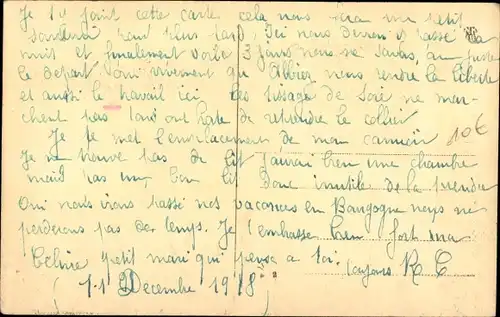 Je t'y joint cette carte cela nous fera un petit
souvenir pour plus tard, Ici nous devons y passé la
nuit et finalement voila 3 jours nous ne savons, au juste
le départ vivement qu nous rendre la liberté
et aussi le travail ici Les tissage de Soie ne mar-
chent pas tous ont hate de reprendre le collier
Je te met l'emplacement de mon camion
10€
Je ne trouve pas de lit j'aurai bien une chambre
mais pas un bon lit donc inutile de la prendre
Oui nous irons passé nos vacances en Bourgogne nous ne
perderons pas de temps. Je t'embrasse bien fort ma
petit mari qui pense a toi.
toujours R C
(11 Decembre 1918